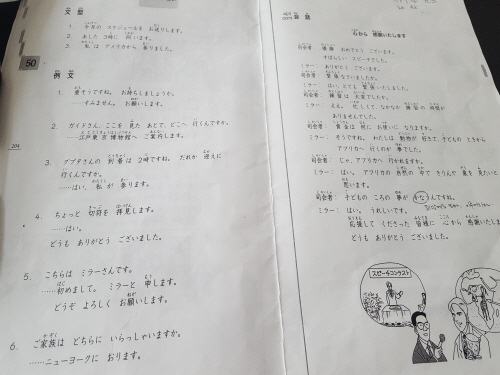 文型
1. 今月の スケジュールを お送りします。
2. あした 3時に 伺います。
3. 私は アメリカから 参りました。
50
例文
1. 重そうですね。お持ちしましょうか。
……すみません。お願いします。
2. ガイドさん、ここを 見た あとで、どこへ 行くんですか。
…江戸東京博物館へ ご案内します。
204
3. グプタさんの 到着は 2時ですね。だれか 迎えに
行くんですか。
……はい、私が 参ります。
4. ちょっと 切符を 拝見します。
……はい。
どうも ありがとう ございました。
5. こちらは ミラーさんです。
……初めまして。ミラーと 申します。
どうぞ よろしく お願いします。
6. ご家族は どちらに いらっしゃいますか。
……ニューヨークに おります。
会話
心から 感謝いたします
司会者: 優勝 おめでとう ございます。
すばらしい スピーチでした。
ミラー: ありがとう ございます。
司会者: 緊張なさいましたか。
ミラー: はい、とても 緊張いたしました。
司会者: 練習は 大変でしたか。
ミラー: ええ。忙しくて、なかなか 練習の 時間が
ありませんでした。
司会者: 賞金は 何に お使いに なりますか。
ミラー: そうですね。わたしは 動物が 好きで、子どもの ときから
アフリカへ 行くのが 夢でした。
司会者: じゃ、アフリカへ 行かれますか。
ミラー: はい。アフリカの 自然の 中で きりんや 象を 見たいと
思います。
司会者: 子どもの ころの 夢が かなうんですね。
ミラー: はい。うれしいです。
応援して くださった 皆様に 心から 感謝いたします
どうも ありがとう ございました。
スピーチコンテスト